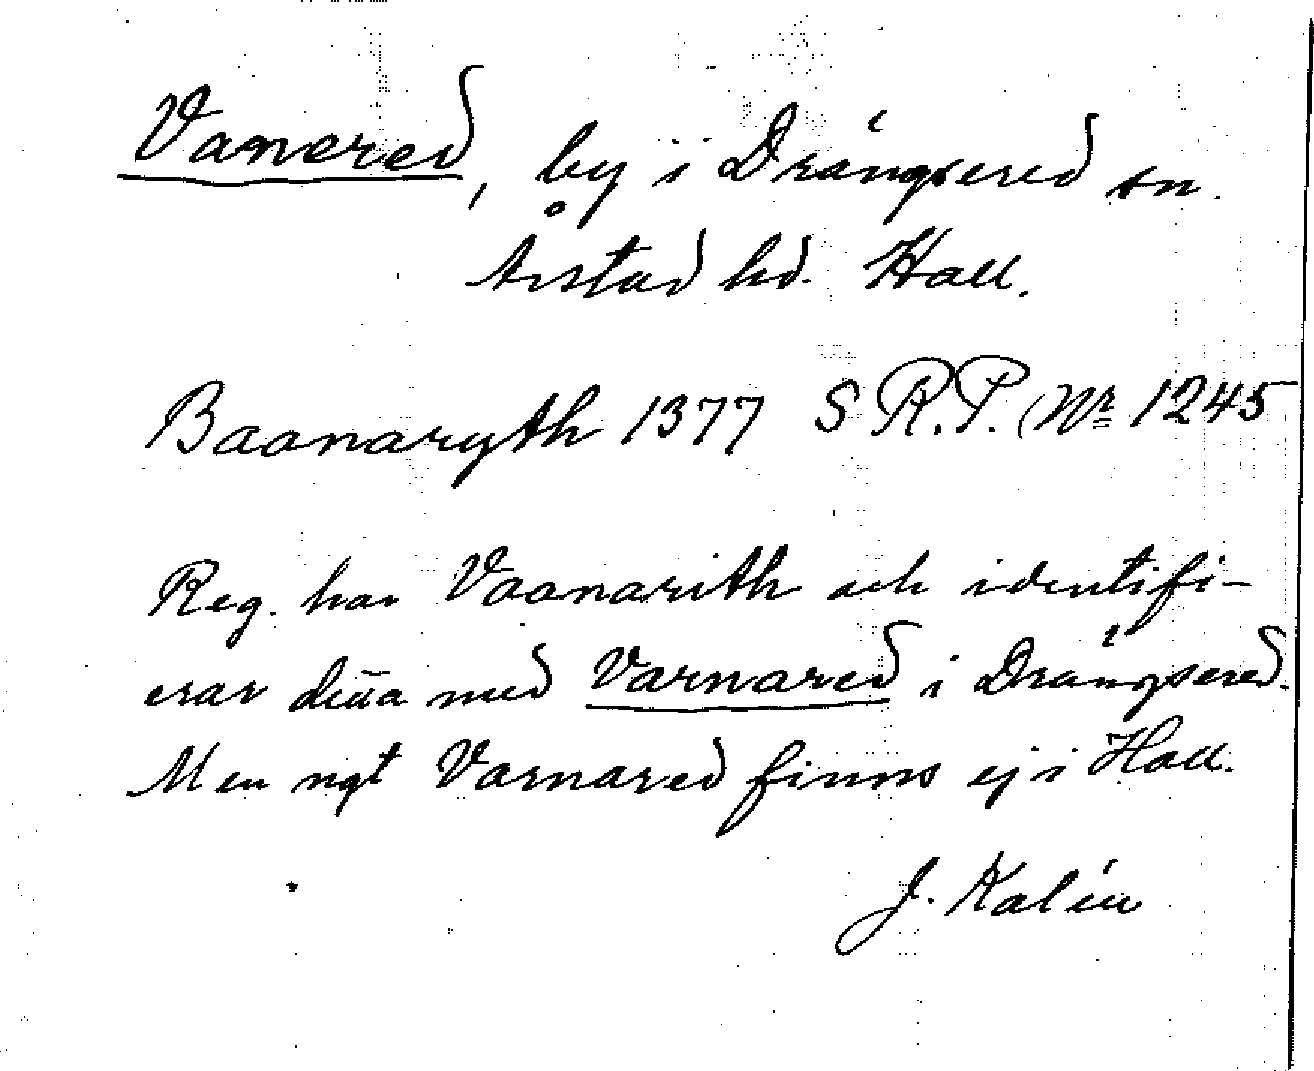 Vanered, by i Drängsered sn.
Årstad hd. Hall.
Baanaryth 1377 S R.P. Nr 1245
Reg. har Vaanarith och identifi-
erar denna med Varnared i Drängsered.
Men ngt Varnared finns ej i Hall.
J. Kalén